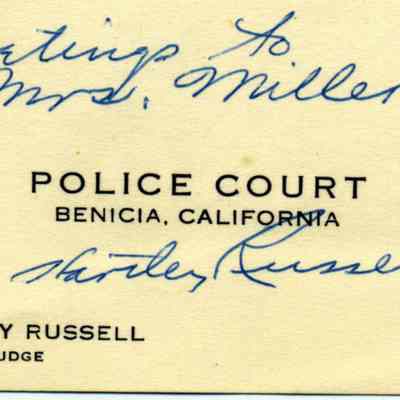 etings to
Mrs. Miller
POLICE COURT
BENICIA, CALIFORNIA
Hartley Russe
Y RUSSELL
UDGE